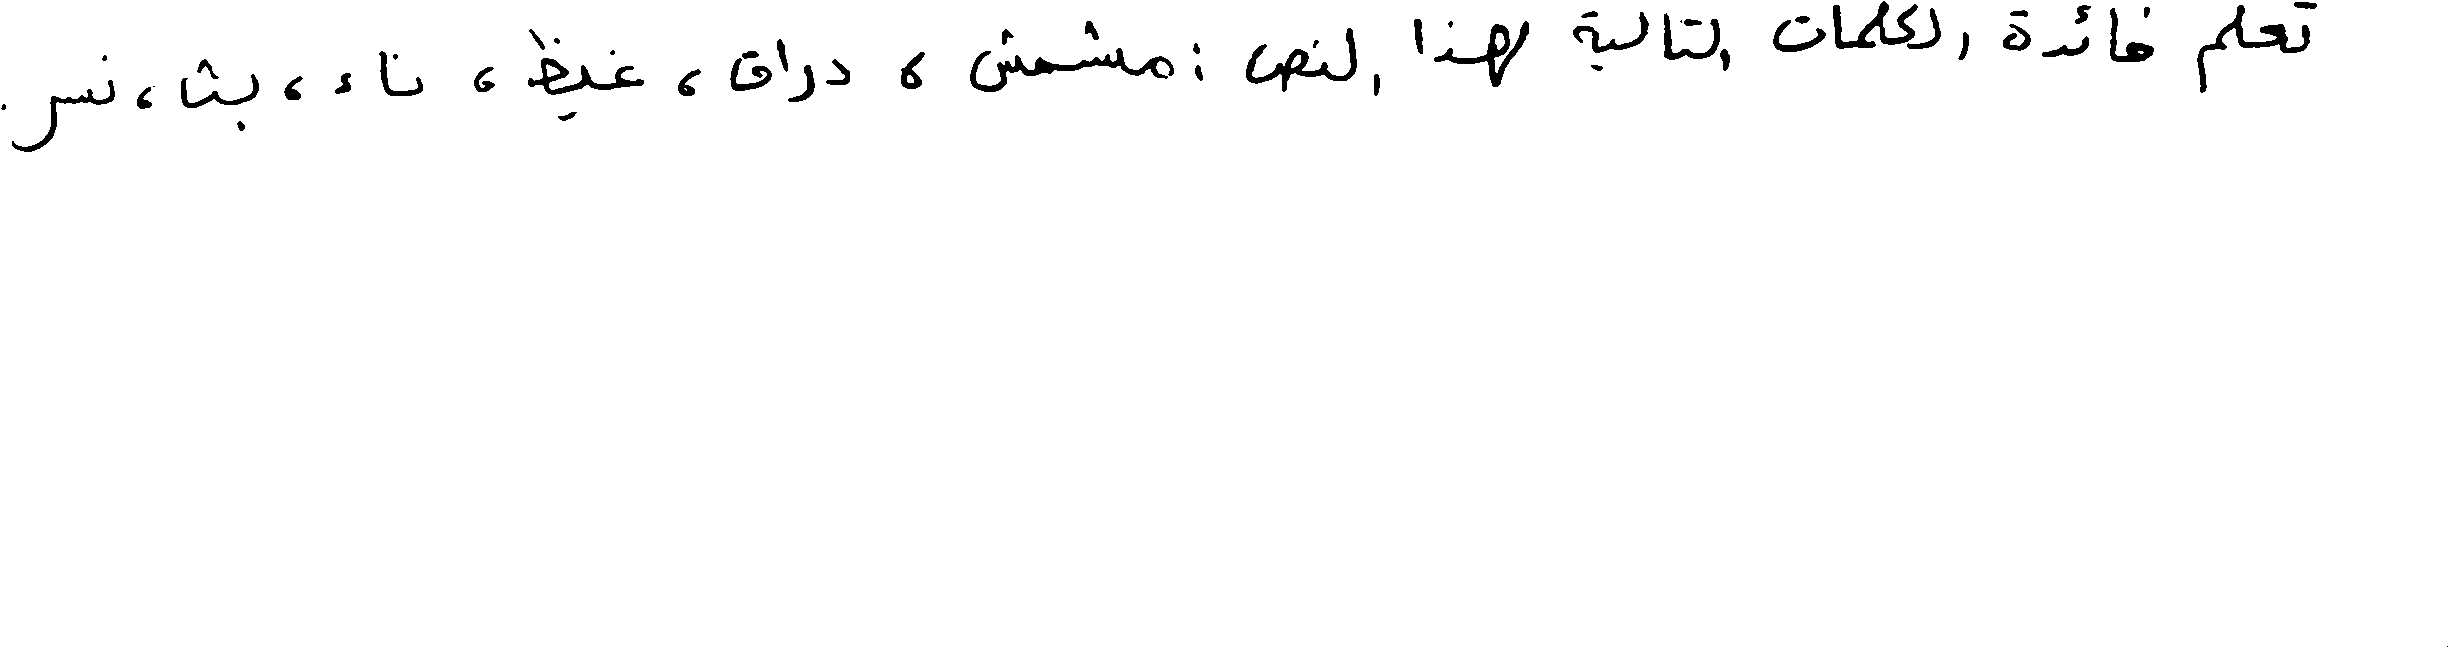 تعلم فائدة الكلمات التالية لهذا النص : مشمش ، دراق ، غيظ ، ناء ، بثا ، نسر .